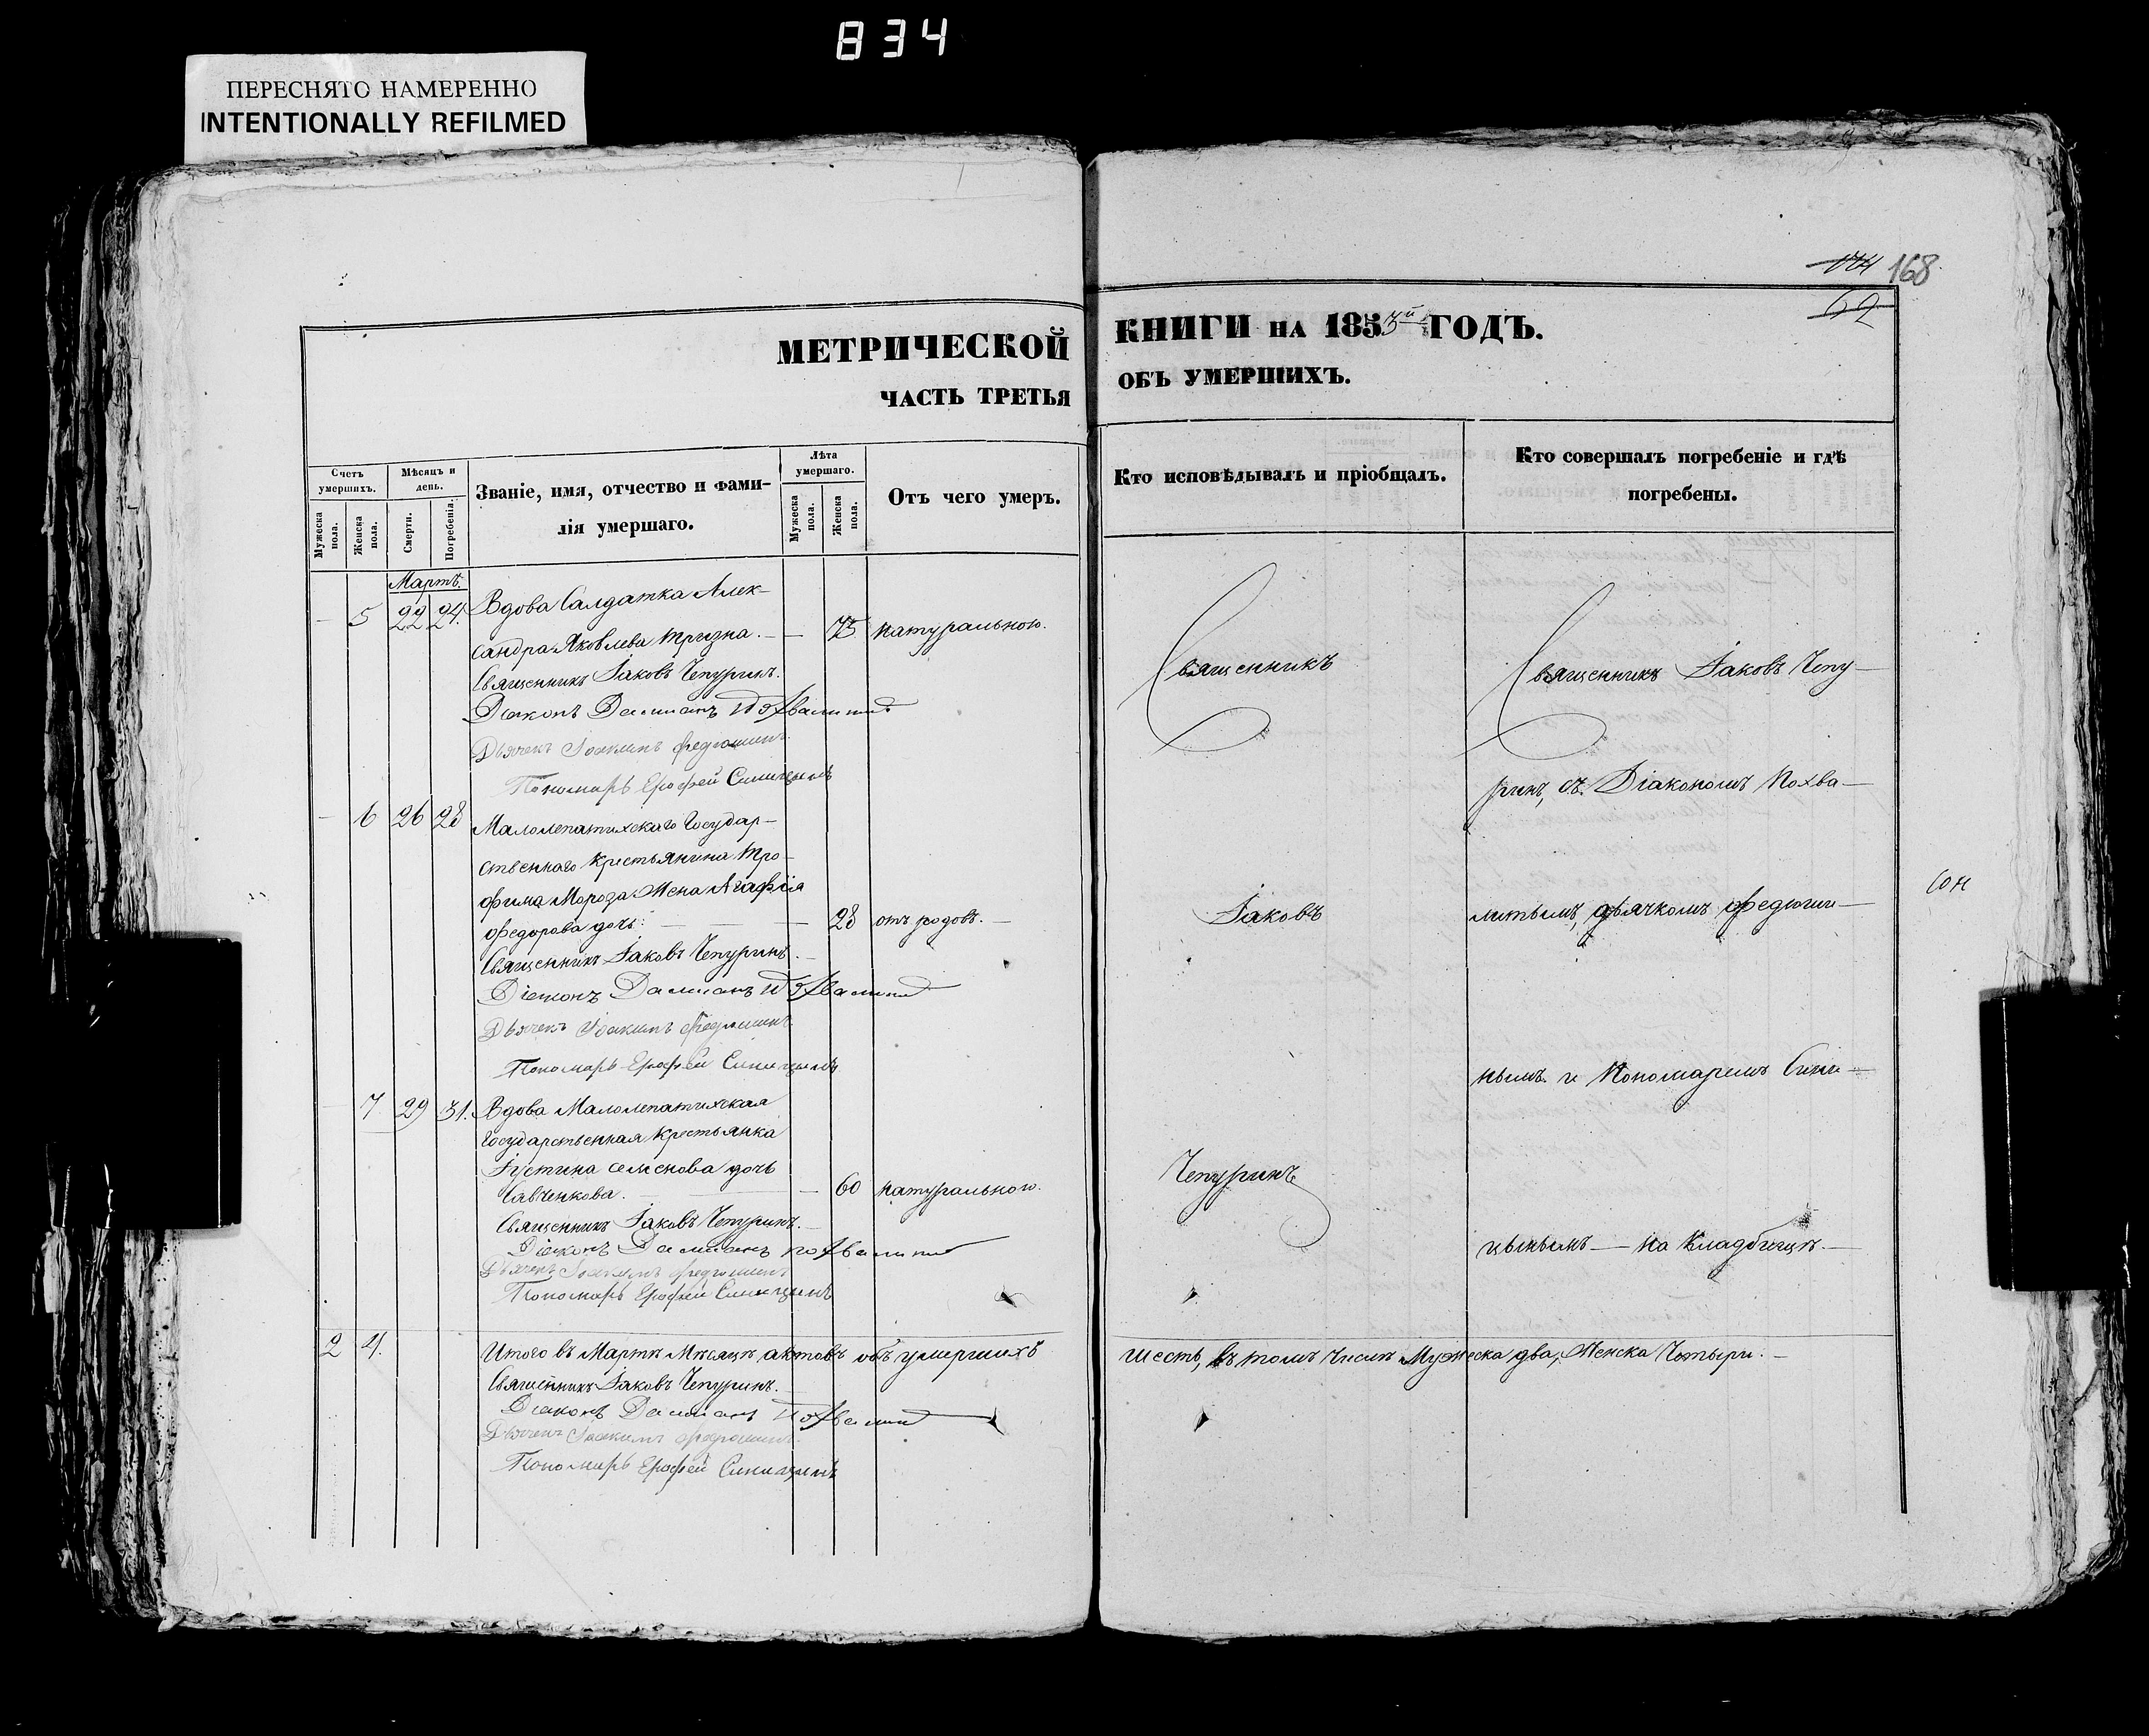 834
ПЕРЕСНЯТО НАМЕРЕННО
INTENTIONALLY REFILMED
174 168
62
МЕТРИЧЕСКОЙ КНИГИ НА 1853й ГОДЪ.
ЧАСТЬ ТРЕТЬЯ ОБЪ УМЕРШИХЪ.
Счетъ умершихъ.
Мужеска пола.
Женска пола.
Мѣсяцъ и день.
Смерти.
Погребенія.
Званіе, имя, отчество и фами-
лія умершаго.
Лѣта умершаго.
Мужеска пола.
Женска пола.
Отъ чего умеръ.
Кто исповѣдывалъ и пріобщалъ.
Кто совершалъ погребеніе и гдѣ
погребены.
Мартъ.
— 5 22 24. Вдова Салдатка Алек-
сандра Яковлева Тризна. — — 75 натуральною.
Священникъ Іаковъ Чепуринъ.
Діаконъ Даміанъ Похвалитый
Дьячекъ Іоакимъ Федюшинъ
Пономарь Ерофей Синицынъ
— 6 26 28 Малолепатихскаго Государ-
ственнаго крестьянина Тро-
фима Мороза Жена Агафія
Федорова дочь: — — 28 отъ родовъ. —
Священникъ Іаковъ Чепуринъ. —
Діаконъ Даміанъ Похвалитый
Дьячекъ Іоакимъ Федюшинъ
Пономарь Ерофей Синицынъ
— 7 29 31. Вдова Малолепатихская
Государственная крестьянка
Іустина Семенова дочь
Савченкова. — — 60 натуральною.
Священникъ Іаковъ Чепуринъ. —
Діаконъ Даміанъ Похвалитый
Дьячекъ Іоакимъ Федюшинъ
Пономарь Ерофей Синицынъ
Священникъ
Іаковъ
Чепуринъ
Священникъ Іаковъ Чепу-
ринъ, съ Діакономъ Похва-
литымъ, дьячкомъ Федюши-
нымъ и Пономаремъ Сини-
цынымъ — на Кладбищѣ. —
2 4. Итого въ Мартѣ Мѣсяцѣ актовъ объ умершихъ шесть, въ томъ числѣ Мужеска два, Женска Четыри. —
Священникъ Іаковъ Чепуринъ. —
Діаконъ Даміанъ Похвалитый
Дьячекъ Іоакимъ Федюшинъ
Пономарь Ерофей Синицынъ